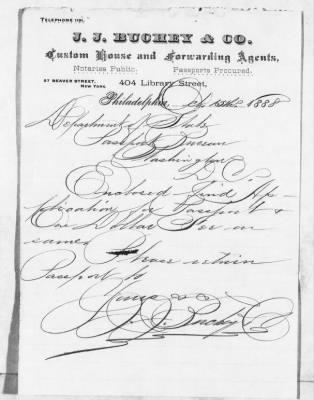 TELEPHONE 1191.
J. J. BUCHEY & CO.
Custom House and Forwarding Agents,
Notaries Public. Passports Procured.
57 BEAVER STREET,
NEW YORK
404 Library Street,
Philadelphia, 1888
Department of State
Passport Bureau
Washington
Enclosed find Ap-
plication for Passport &
One Dollar for
same. Please return
Passport to
Yours &c
J. J. Buchey & Co